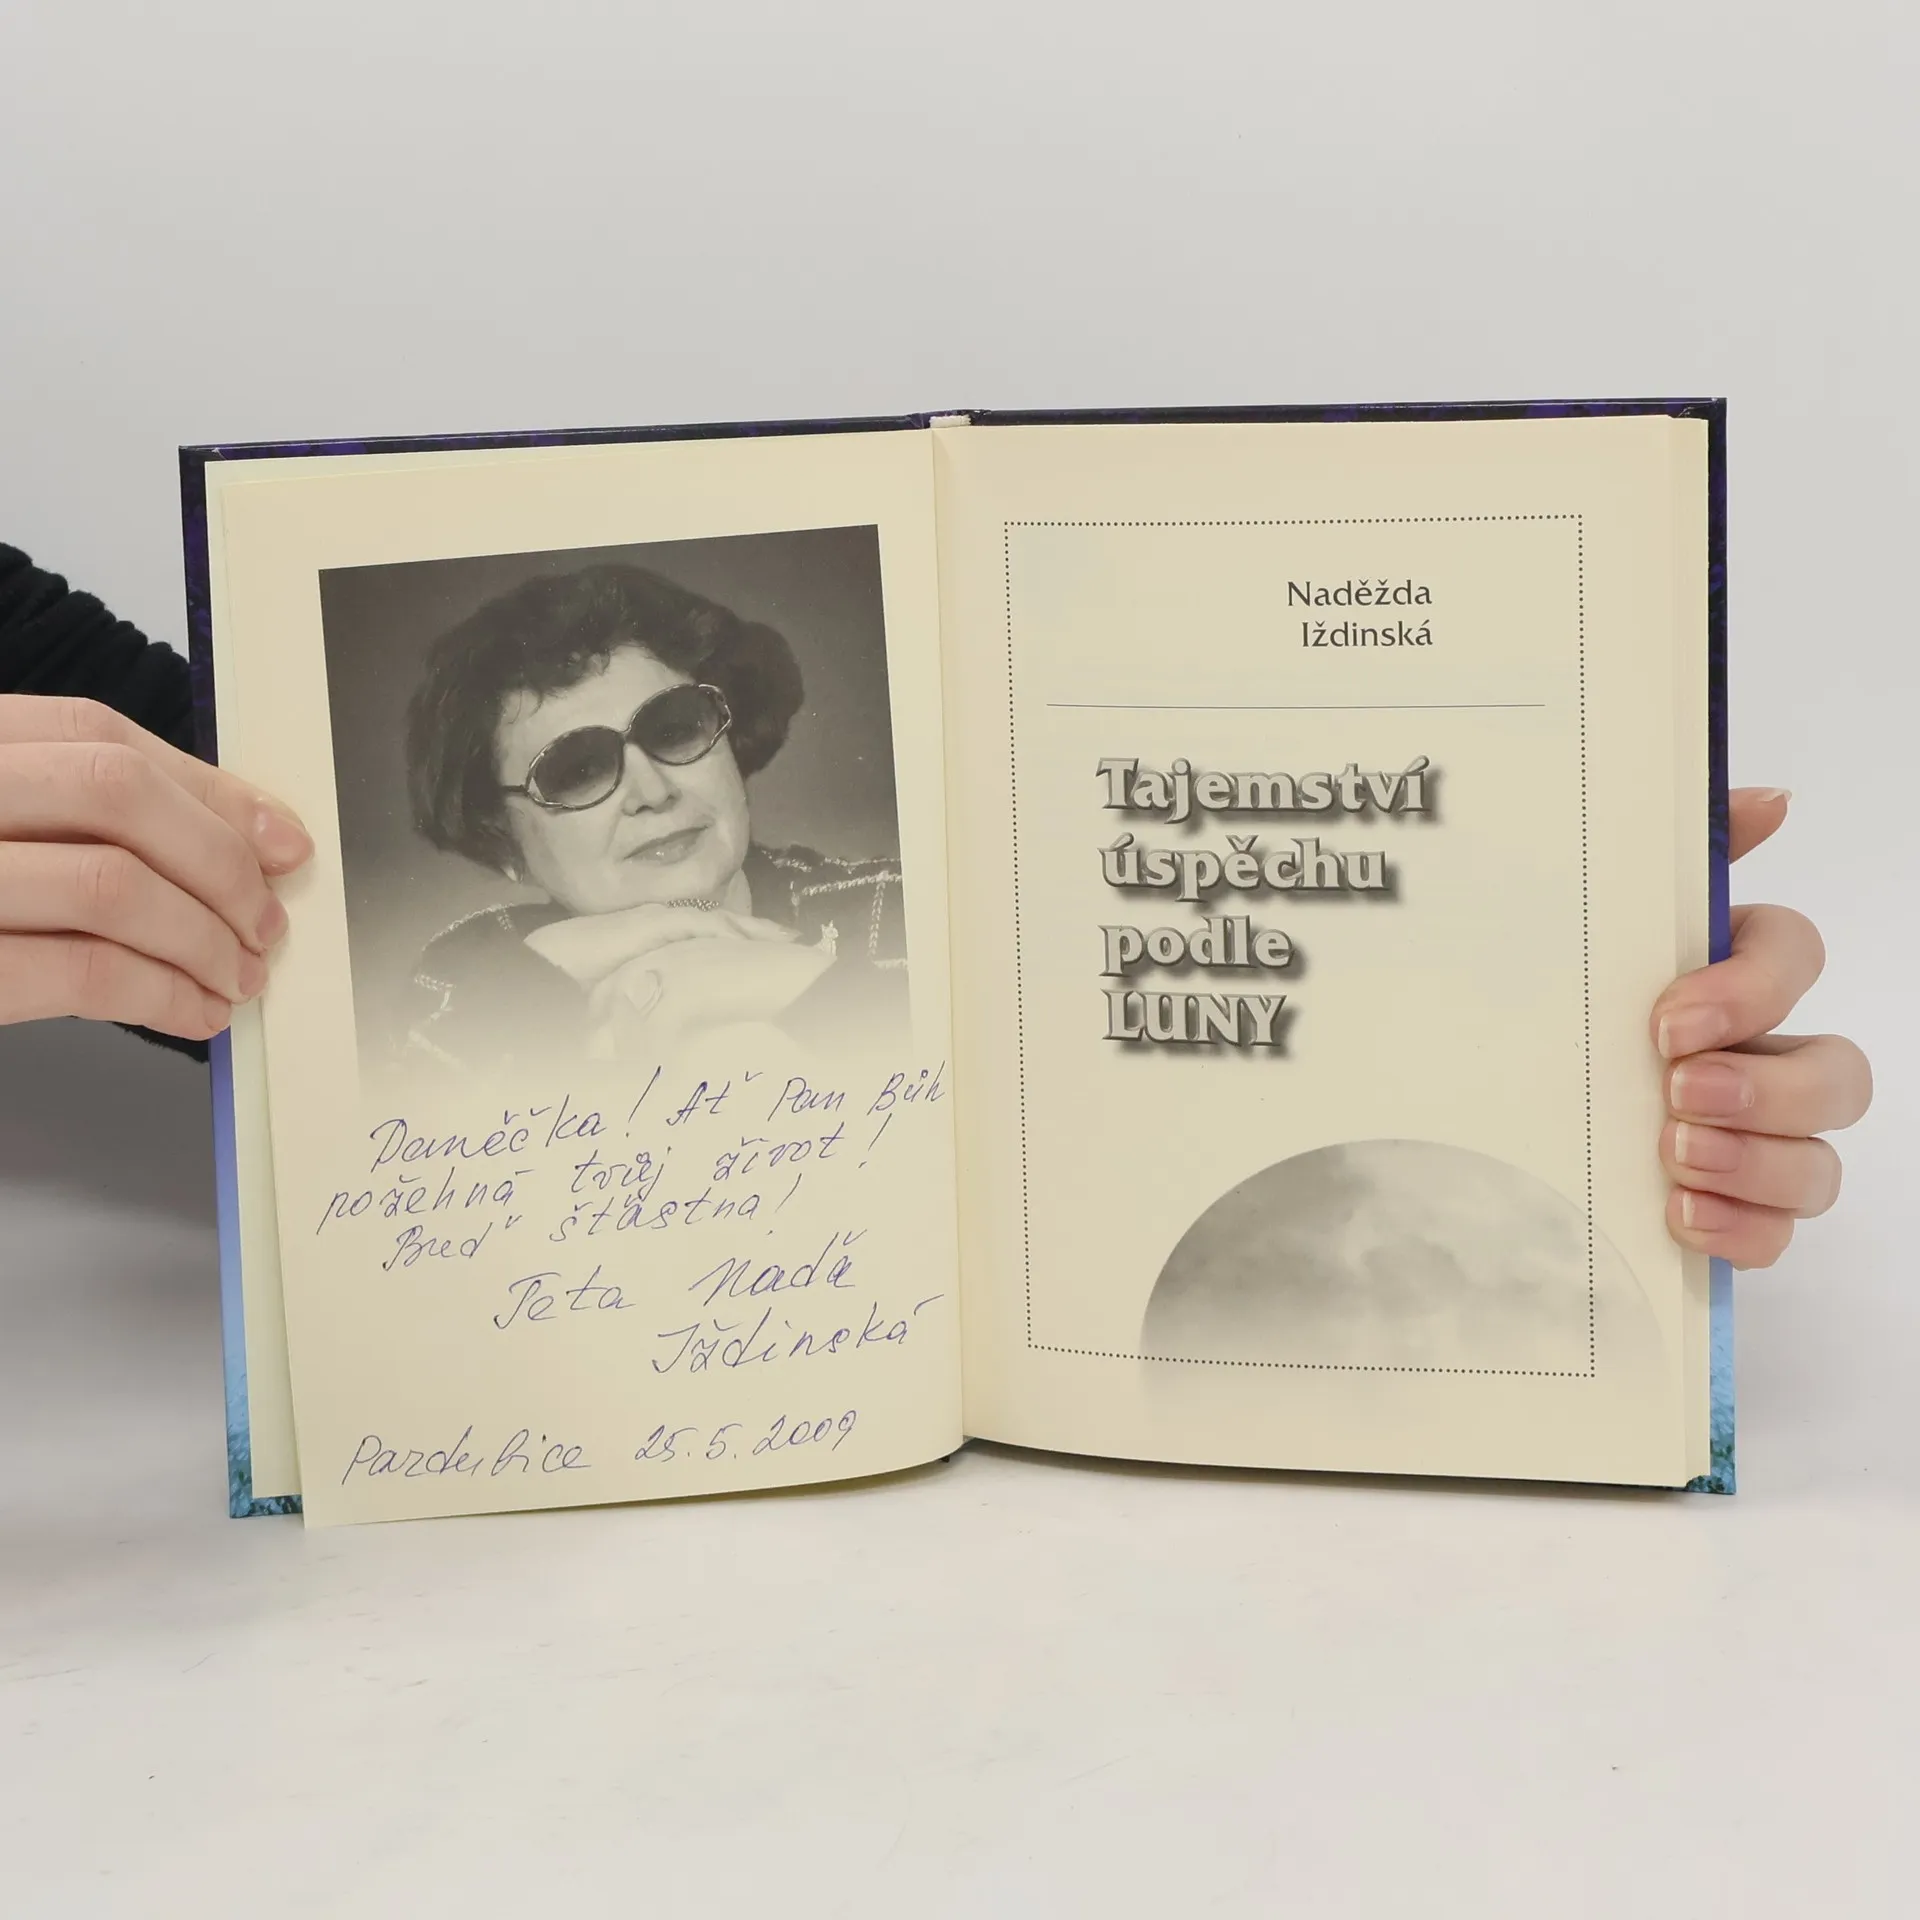 Daněčka! Ať Pan Bůh
požehná tvůj život!
Buď šťastna!
Teta Naďa
Iždinská
Pardubice 25.5.2009
Naděžda
Iždinská
Tajemství
úspěchu
podle
LUNY